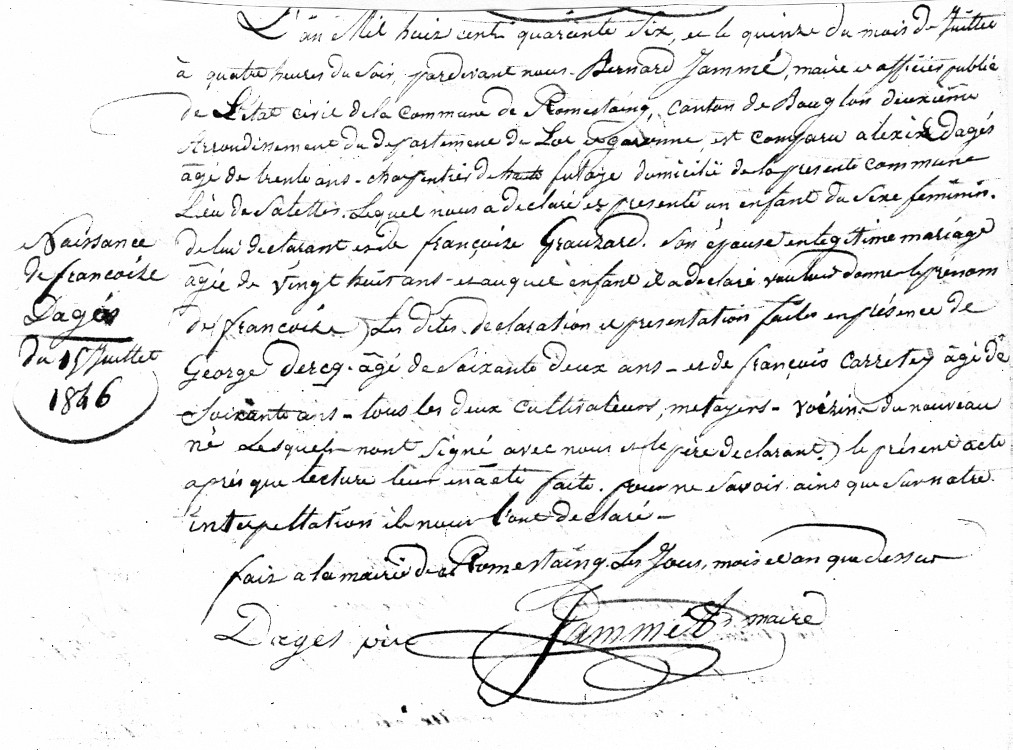 L'an Mil huit cent quarainte six, et le quinze du mois de Juillet
à quatre heures du soir pardevant nous Bernard Jammé, maire et officier public
de L'état civil de la commune de Romestaing, canton de Bouglon deuxième
Arrondissement du departement de Lot et garonne est comparu alexis dagés
âgé de trente ans - charpentier de haute futage domicilié de la presente commune
Lieu de Lequel nous a declaré et presenté un enfant du Sexe feminin.
de lui declarant et de françoize Grauzard. Son épouse en legitime mariage
âgée de Vingt huit ans - et auquel enfant il a declaré vouloir donner le prénom
de (françoize) Les dites declaration et presentation faites en présence de
George Dercq âgé de Soixante deux ans - et de françois Carretey âgé de
Soixante ans - tous les deux cultivateurs metayers - voézins du nouveau
né Lesquels nont Signé avec nous et (le père declarant) le présent acte
après que lecture leur en a été faite. pour ne savoir ainsi que Sur notre
interpellation ils nous l'ont declaré -
fait a la mairie de Romestaing. Les Jour, mois et an que dessus
Naissance
de françoize
Dagés
du 15 Juillet
1846
Dages
Jammé maire